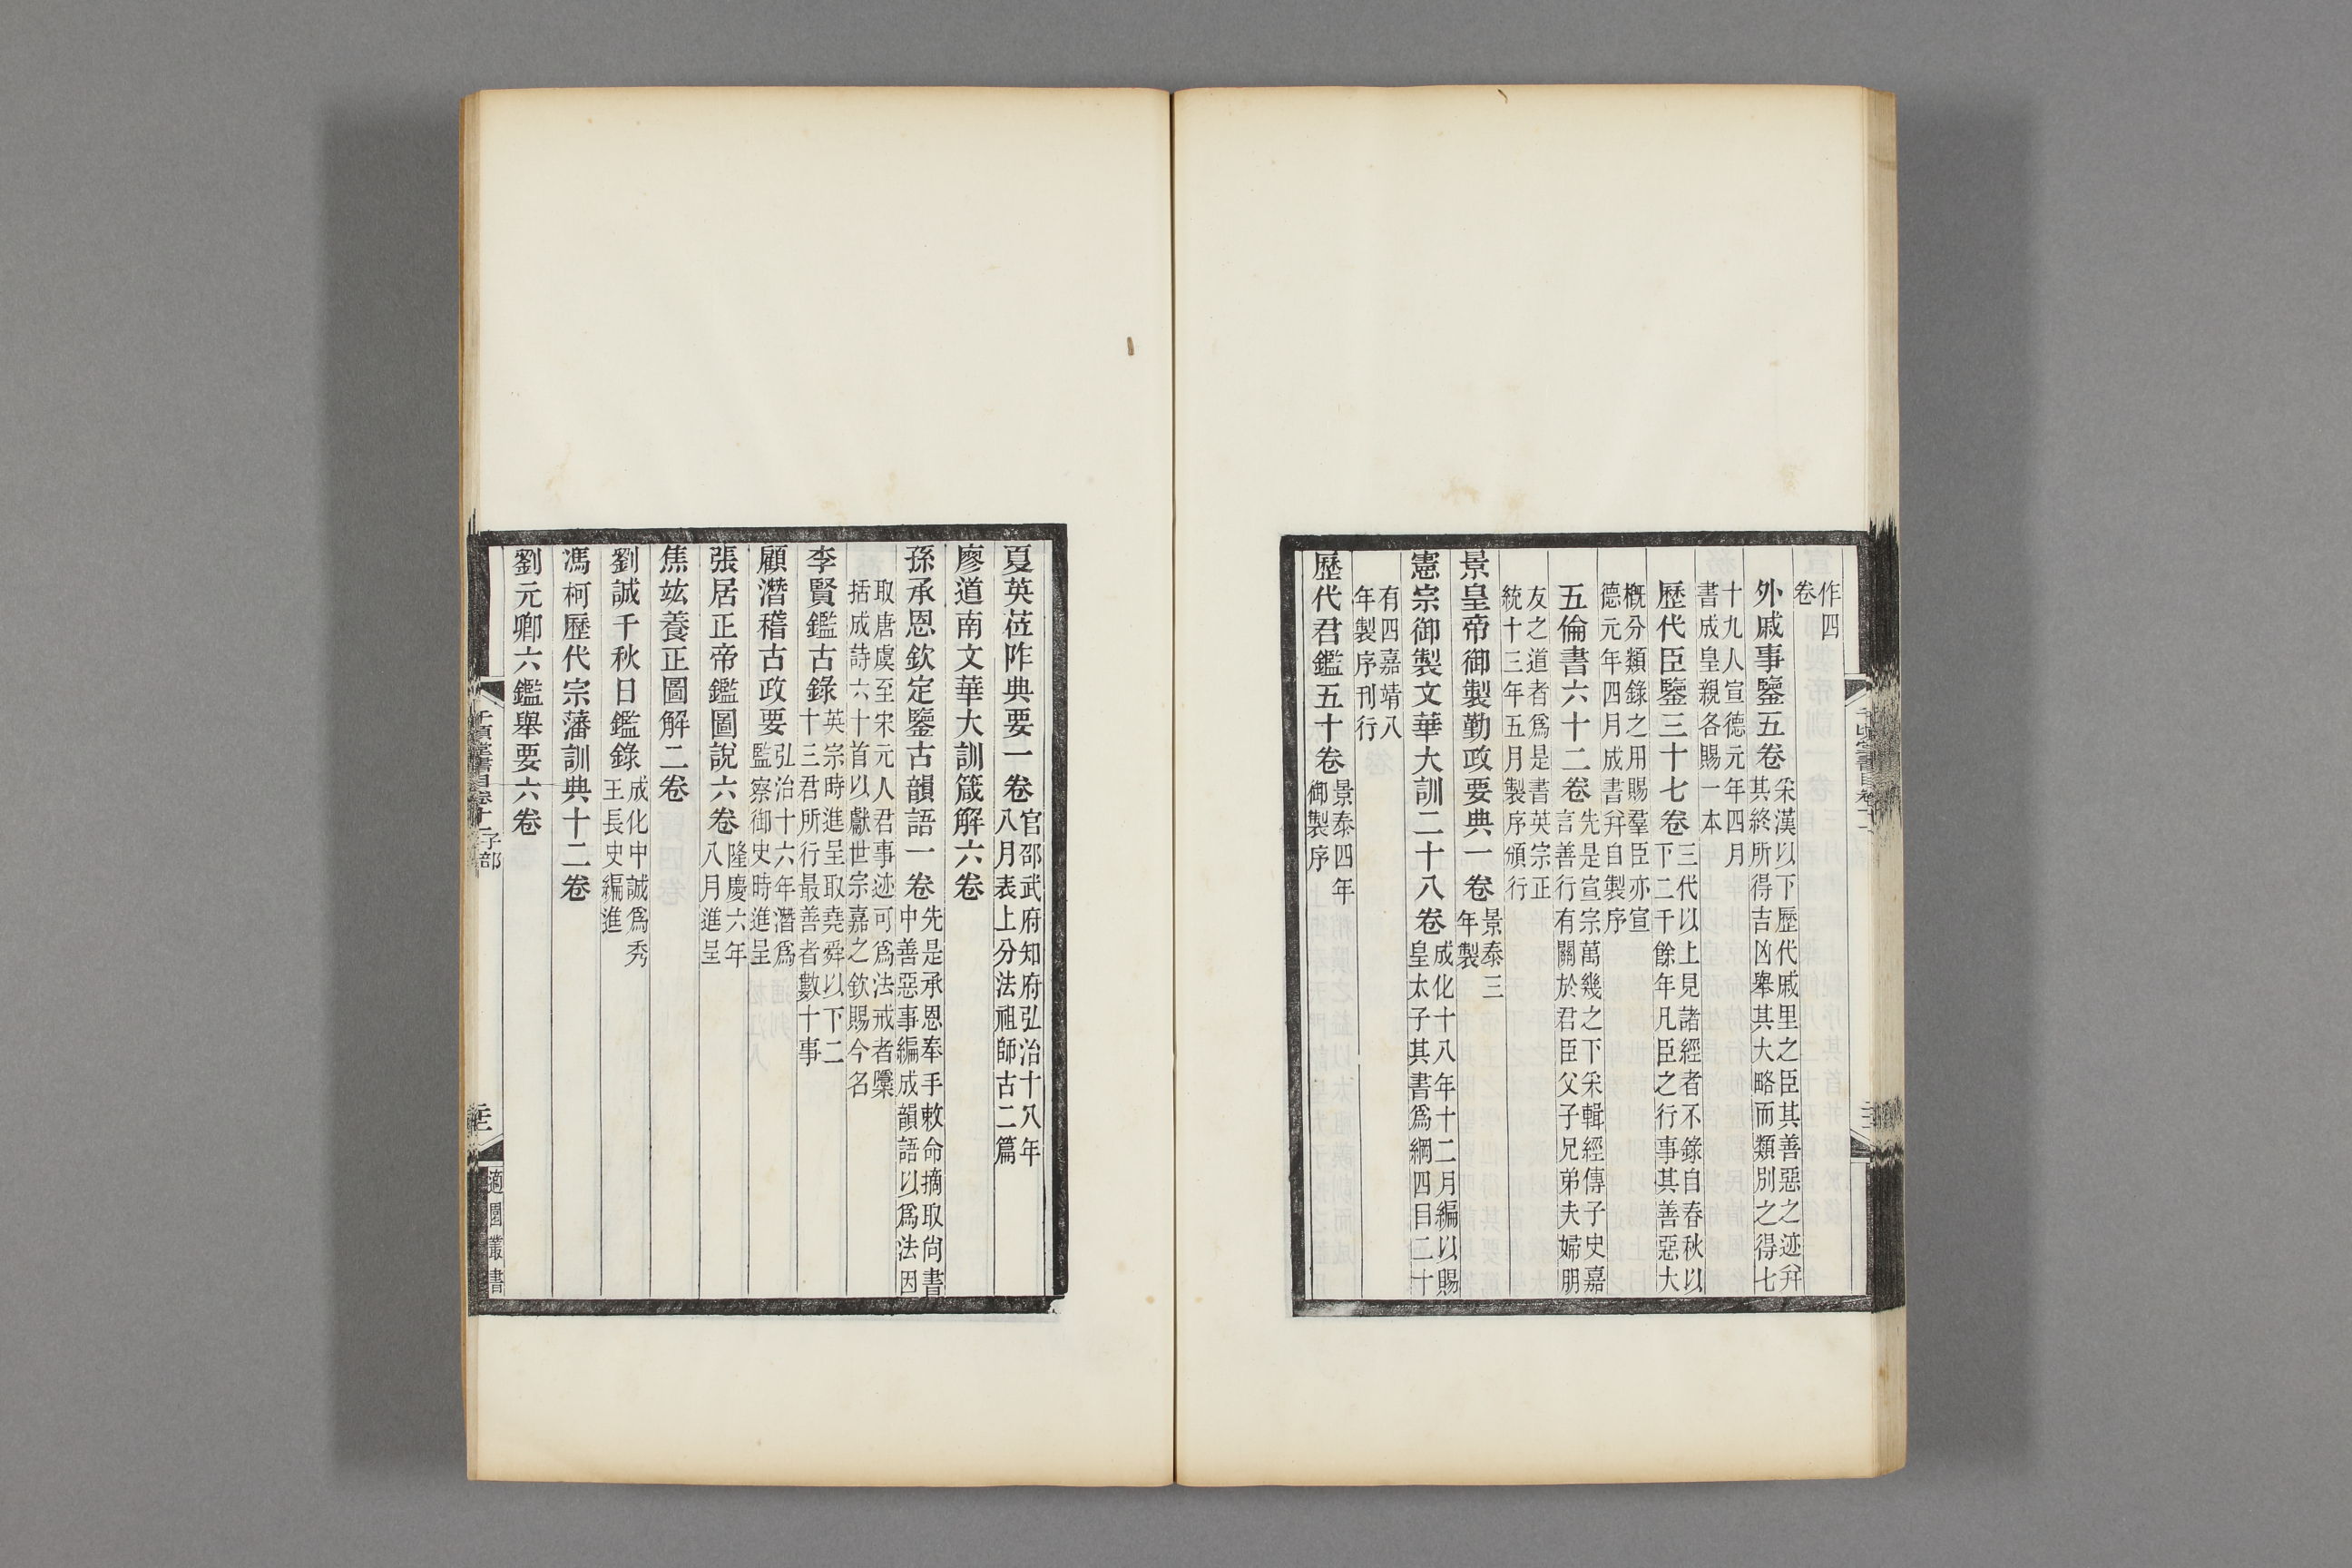 作四
卷
外戚事鑒五卷
采漢以下歷代戚里之臣其善惡之迹幷
其終所得吉凶舉其大略而類別之得七
十九人宣德元年四月
書成皇親各賜一本
歷代臣鑒三十七卷
三代以上見諸經者不錄自春秋以
下二千餘年凡臣之行事其善惡大
槪分類錄之用賜羣臣亦宣
德元年四月成書幷自製序
五倫書六十二卷
先是宣宗萬幾之下采輯經傳子史嘉
言善行有關於君臣父子兄弟夫婦朋
友之道者爲是書英宗正
統十三年五月製序頒行
景皇帝御製勤政要典一卷
景泰三
年製
憲宗御製文華大訓二十八卷
成化十八年十二月編以賜
皇太子其書爲綱四目二十
有四嘉靖八
年製序刊行
歷代君鑑五十卷
景泰四年
御製序
夏英莅阼典要一卷
官邵武府知府弘治十八年
八月表上分法祖師古二篇
廖道南文華大訓箴解六卷
孫承恩欽定鑒古韻語一卷
先是承恩奉手敕命摘取尙書
中善惡事編成韻語以爲法因
取唐虞至宋元人君事迹可爲法戒者檃
括成詩六十首以獻世宗嘉之欽賜今名
李賢鑑古錄
英宗時進呈取堯舜以下二
十三君所行最善者數十事
顧潛稽古政要
弘治十六年潛爲
監察御史時進呈
張居正帝鑑圖說六卷
隆慶六年
八月進呈
焦竑養正圖解二卷
劉誠千秋日鑑錄
成化中誠爲秀
王長史編進
馮柯歷代宗藩訓典十二卷
劉元卿六鑑舉要六卷
千頃堂書目卷十一子部
適園叢書